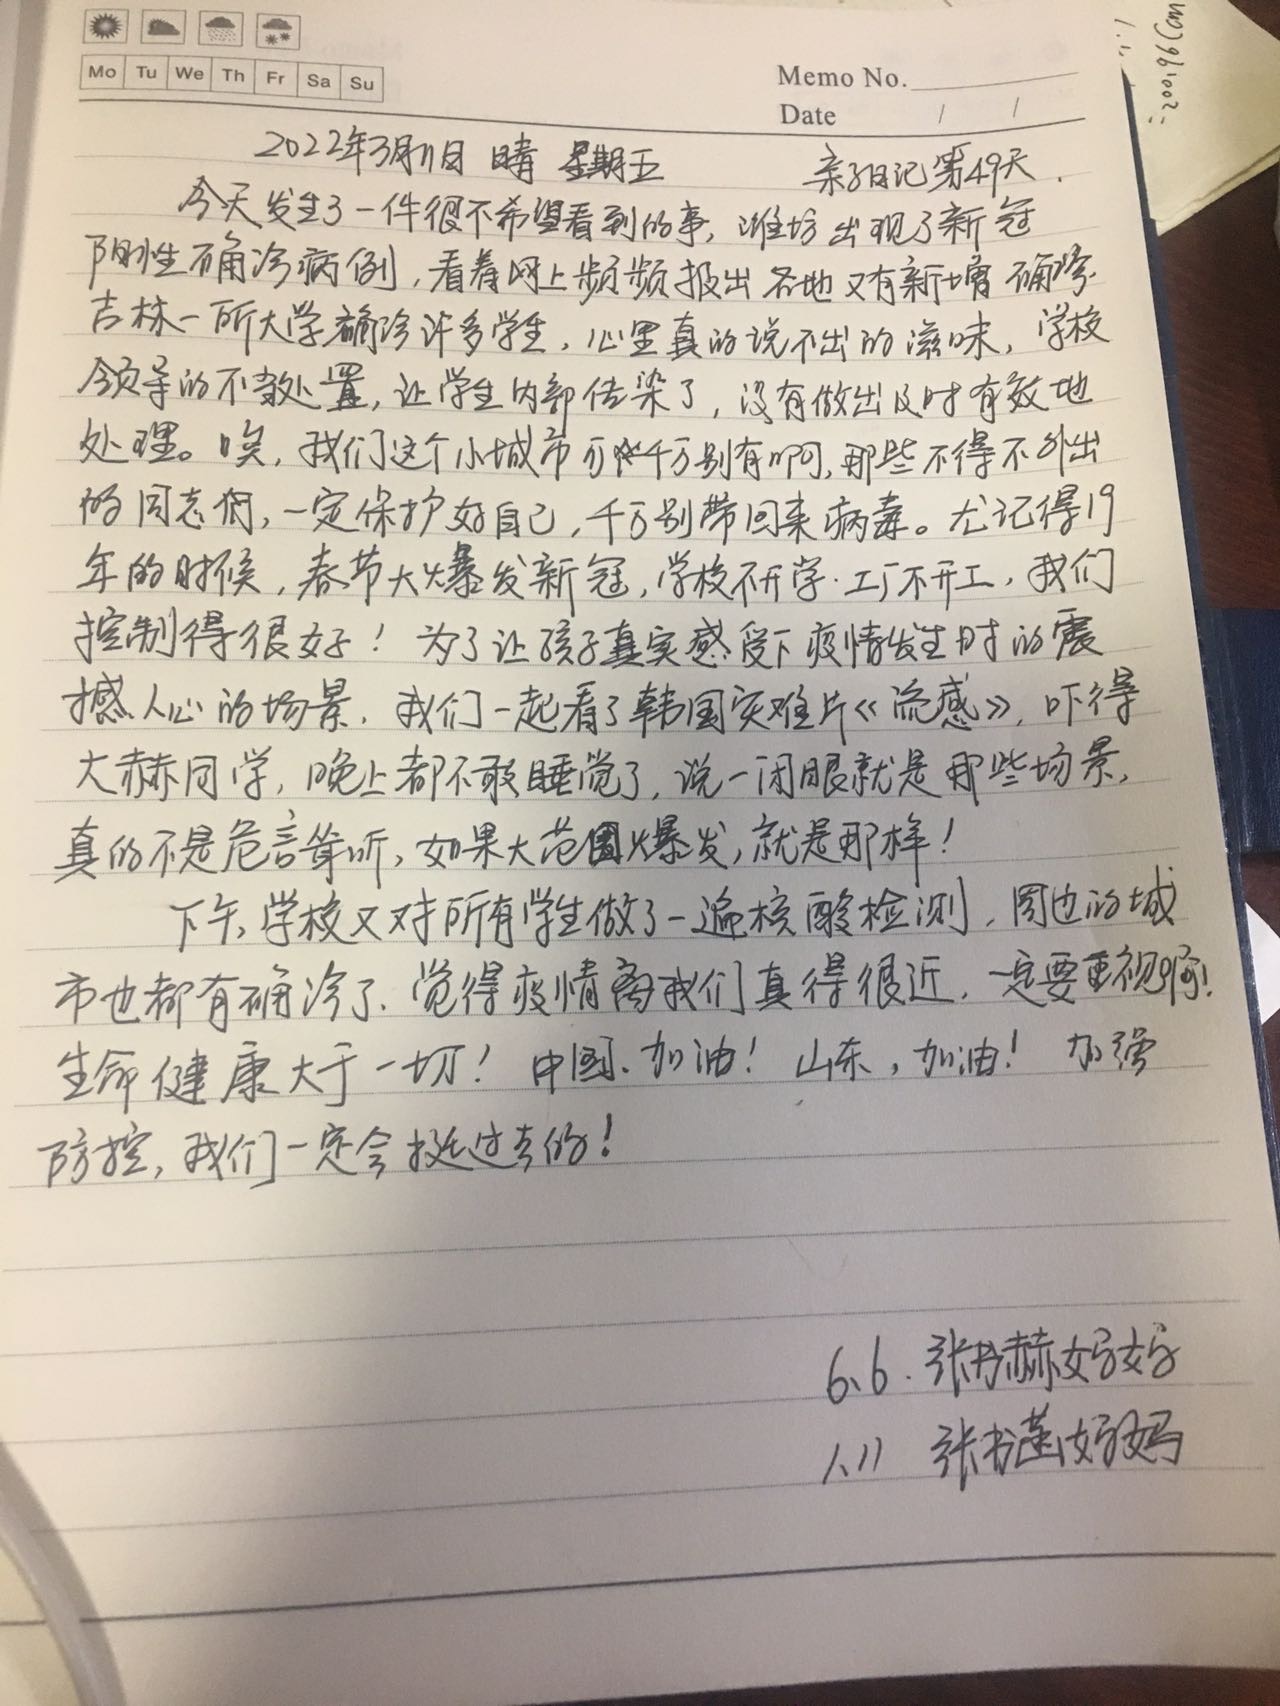 Mo Tu We Th Fr Sa Su
Memo No.
Date / /
2022年3月11日 晴 星期五 亲子日记第49天.
今天发生了一件很不希望看到的事，潍坊出现了新冠
阳性确诊病例，看着网上频频报出各地又有新增确诊.
吉林一所大学确诊许多学生，心里真的说不出的滋味，学校
领导的不救处置，让学生内部传染了，没有做出及时有效地
处理。唉，我们这个小城市千万别有啊，那些不得不外出
的同志们，一定保护好自己，千万别带回来病毒。尤记得19
年的时候，春节大爆发新冠，学校不开学.工厂不开工，我们
控制得很好！为了让孩子真实感受下疫情发生时的震
撼人心的场景，我们一起看了韩国灾难片《流感》，吓得
大赫同学，晚上都不敢睡觉了，说一闭眼就是那些场景，
真的不是危言耸听，如果大范围爆发，就是那样！
下午，学校又对所有学生做了一遍核酸检测，周边的城
市也都有确诊了、觉得疫情离我们真得很近，一定要重视啊！
生命健康大于一切！中国、加油！山东，加油！加强
防控，我们一定会挺过去的！
6.6. 张丹赫妈妈
1.11 张书菡妈妈